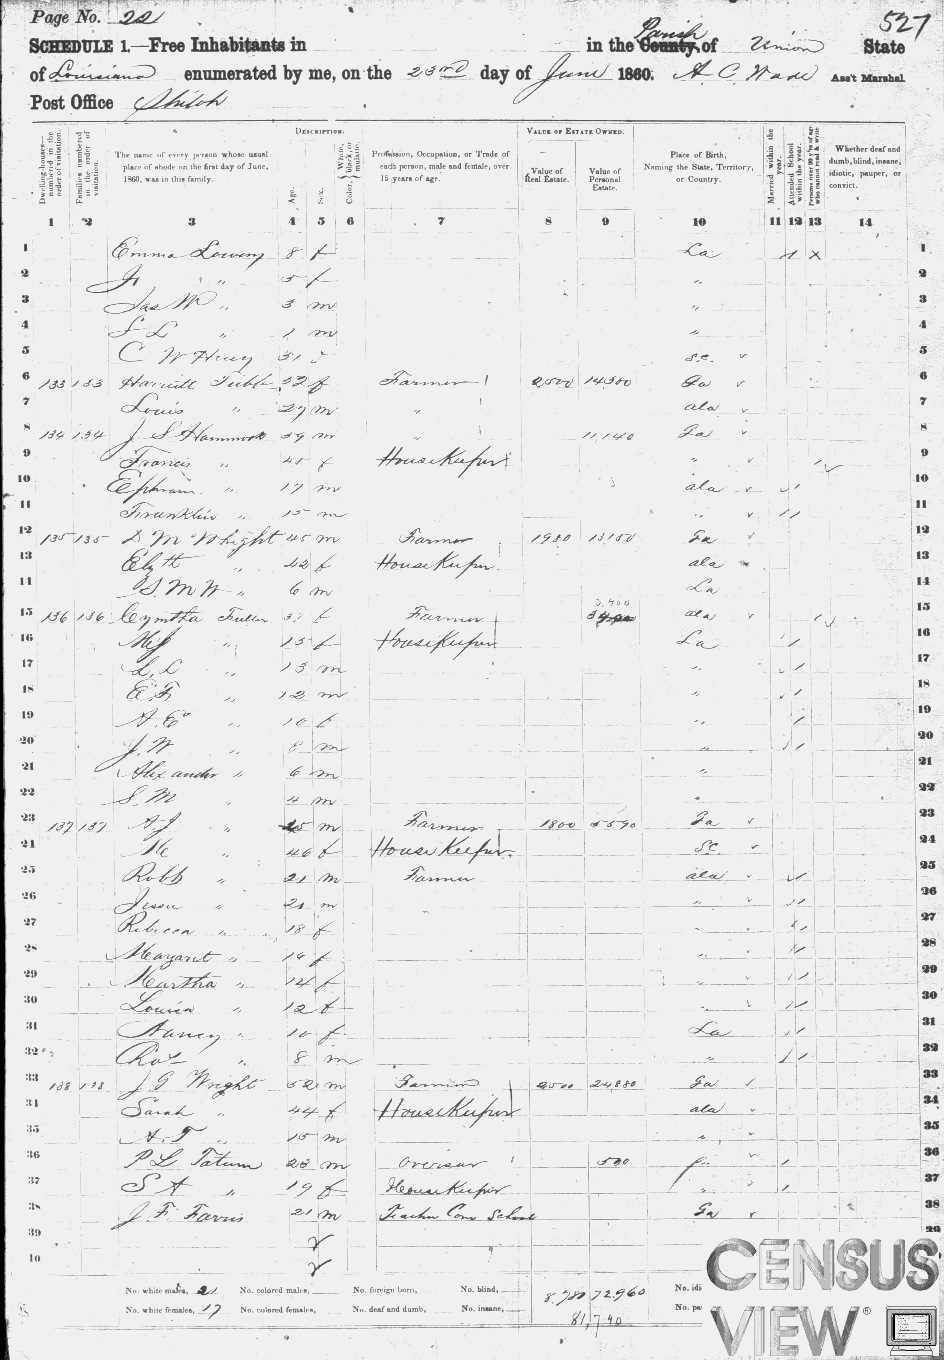 Page No. 22 527
SCHEDULE 1.—Free Inhabitants in in the County Parish of Union State
of Louisiana enumerated by me, on the 23rd day of June 1860. A C Wade Ass't Marshal
Post Office Shiloh
DESCRIPTION. VALUE OF ESTATE OWNED.
Dwelling-houses—numbered in the order of visitation. Families numbered in the order of visitation. The name of every person whose usual place of abode on the first day of June, 1860, was in this family. Age. Sex. Color, White, black, or mulatto. Profession, Occupation, or Trade of each person, male and female, over 15 years of age. Value of Real Estate. Value of Personal Estate. Place of Birth, Naming the State, Territory, or Country. Married within the year. Attended School within the year. Persons over 20 y'rs of age who cannot read & write. Whether deaf and dumb, blind, insane, idiotic, pauper, or convict.
1 2 3 4 5 6 7 8 9 10 11 12 13 14
1 Emma Lowery 8 f La 1 x 1
2 " 5 f " 2
3 Jas M " 3 m " 3
4 " 1 m " 4
5 C W Huey 31 S.C. 5
6 133 133 Harriett Tubb 52 f Farmer 2,500 14300 Ga 6
7 Louis " 27 m " ala 7
8 134 134 J S Hammock 59 m " 11,140 Ga 8
9 Francis " 45 f House Keeper " 9
10 Ephram " 17 m ala 1 10
11 Franklin " 15 m " 1 11
12 135 135 D M Whight 45 m Farmer 1980 13150 Ga 12
13 Elizth " 42 f House Keeper ala 13
14 S M W " 6 m La 14
15 136 136 Cyntha Fuller 37 f Farmer 3,400 ala 15
16 " 15 f House Keeper La 1 16
17 L. L " 13 m " 1 17
18 E. F. " 12 m " 1 18
19 A. E " 10 f " 1 19
20 J. W " 8 m " 1 20
21 Alexander " 6 m " 21
22 S. M " 4 m " 22
23 137 137 A J " m Farmer 1800 5590 Ga 23
24 " 46 f House Keeper S.C. 24
25 Robb " 21 m Farmer ala 1 25
26 Jesse " 21 m " 1 26
27 Rebecca " 18 f " 1 27
28 Margaret " 16 f " 1 28
29 Martha " 14 f " 1 29
30 Louisa " 12 f " 1 30
31 Nancy " 10 f La 1 31
32 " 8 m " 1 32
33 138 138 J G Wright 52 m Farmer 2500 24880 Ga 33
34 Sarah " 44 f House Keeper ala 34
35 A. T " 15 m " 35
36 P L Tatum 23 m Overseer 500 1 36
37 S A " 19 f House Keeper " 1 37
38 J. F. Farris 21 m Teacher Com School Ga 38
39 39
40
No. white males, 21 No. colored males, No. foreign born, No. blind, 8,780 72,960
No. white females, 17 No. colored females, No. deaf and dumb, No. insane, 81,740
CENSUS
VIEW®